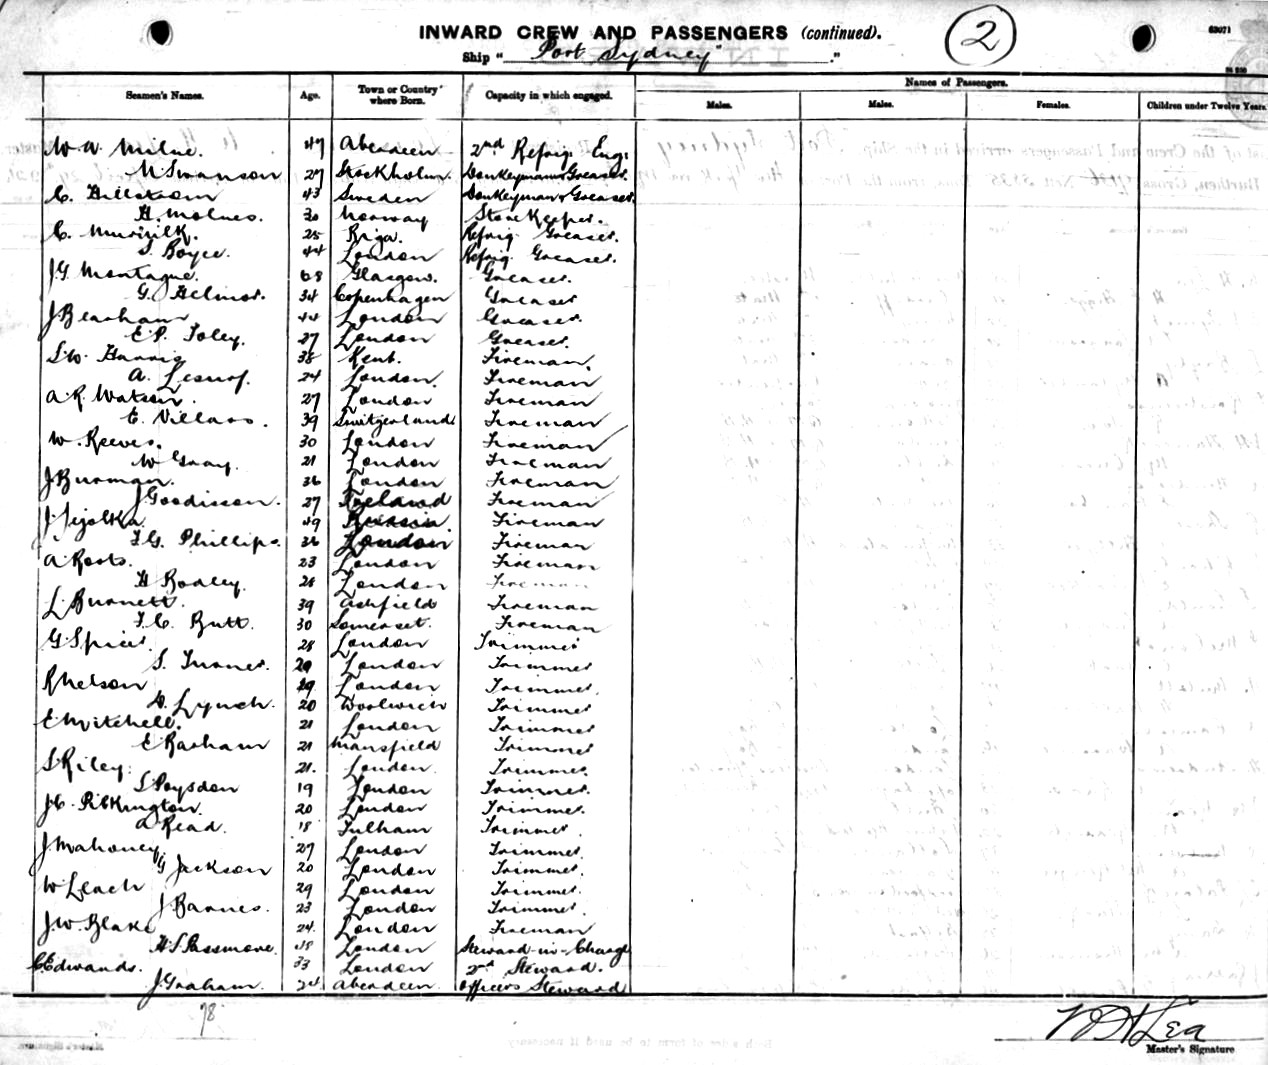 INWARD CREW AND PASSENGERS (continued).
2
63071
Ship "Port Sydney"
Seamen's Names. Age. Town or Country where Born. Capacity in which engaged. Names of Passengers.
Males. Males. Females. Children under Twelve Years.
W. A. Milne. 47 Aberdeen 2nd Refrig. Eng.
N Swanson 27 Stockholm. Donkeyman & Greaser.
C. Hillstrom 43 Sweden Donkeyman & Greaser.
H Molnes. 30 Norway Storekeeper.
C. 25 Riga. Refrig. Greaser.
S. Boyce. 44 London Refrig. Greaser.
J G Montague. 68 Glasgow. Greaser.
G. Helmer. 34 Copenhagen Greaser
J Bearham 44 London Greaser.
E. P. Foley. 27 London Greaser.
S. W. Harris 38 Kent. Fireman.
A. 24 London. Fireman
A. R. Watson. 27 London Fireman
E. Villars. 39 Switzerland Fireman
W. Reeves. 30 London Fireman
W Gray. 21 London Fireman
J Burman. 36 London Fireman
J Goodisson. 27 Ireland Fireman
J. 49 Russia. Fireman
F. G. Phillips. 36 London Fireman
A Roots. 23 London Fireman
H Rodley. 28 London Fireman
L. Burnett. 39 Ashfield Fireman
F. C. Butt. 30 Somerset. Fireman
G Spicer. 28 London Trimmer
S. Turner. 20 London Trimmer
R Nelson 29 London Trimmer.
D. Lynch. 20 Woolwich Trimmer
E Mitchell. 21 London Trimmer
E Basham 21 Mansfield Trimmer
S Riley. 21. London. Trimmer.
S Poysdon 19 London Trimmer.
J. C. Pilkington. 20 London Trimmer.
A Read. 18 Fulham Trimmer.
J Mahoney. 27 London Trimmer.
G Jackson 20 London Trimmer.
W Leach 29 London Trimmer.
J Barnes. 23 London Trimmer.
J. W. Blake 24. London Fireman
H S Passmore. 48 London Steward-in-Charge
C Edwards. 33 London 2nd Steward.
J Graham. 24 Aberdeen Officers Steward
78
Lea
Master's Signature